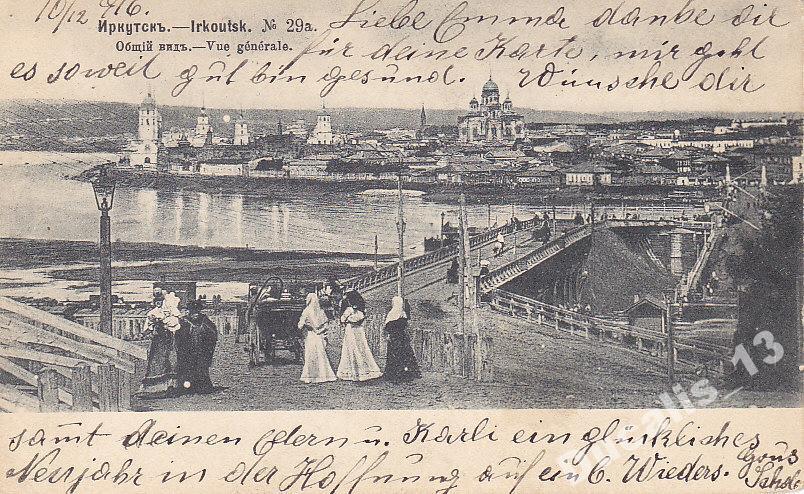 10/12 916.
Иркутскъ.—Irkoutsk. № 29а.
Общій видъ.—Vue générale.
Liebe Emma danke dir
für deine Karte, mir geht
es soweit gut bin gesund. Wünsche dir
samt deinen Eltern u. Karli ein glückliches
Neujahr in der Hoffnung auf ein b. Wieders.
Gruss